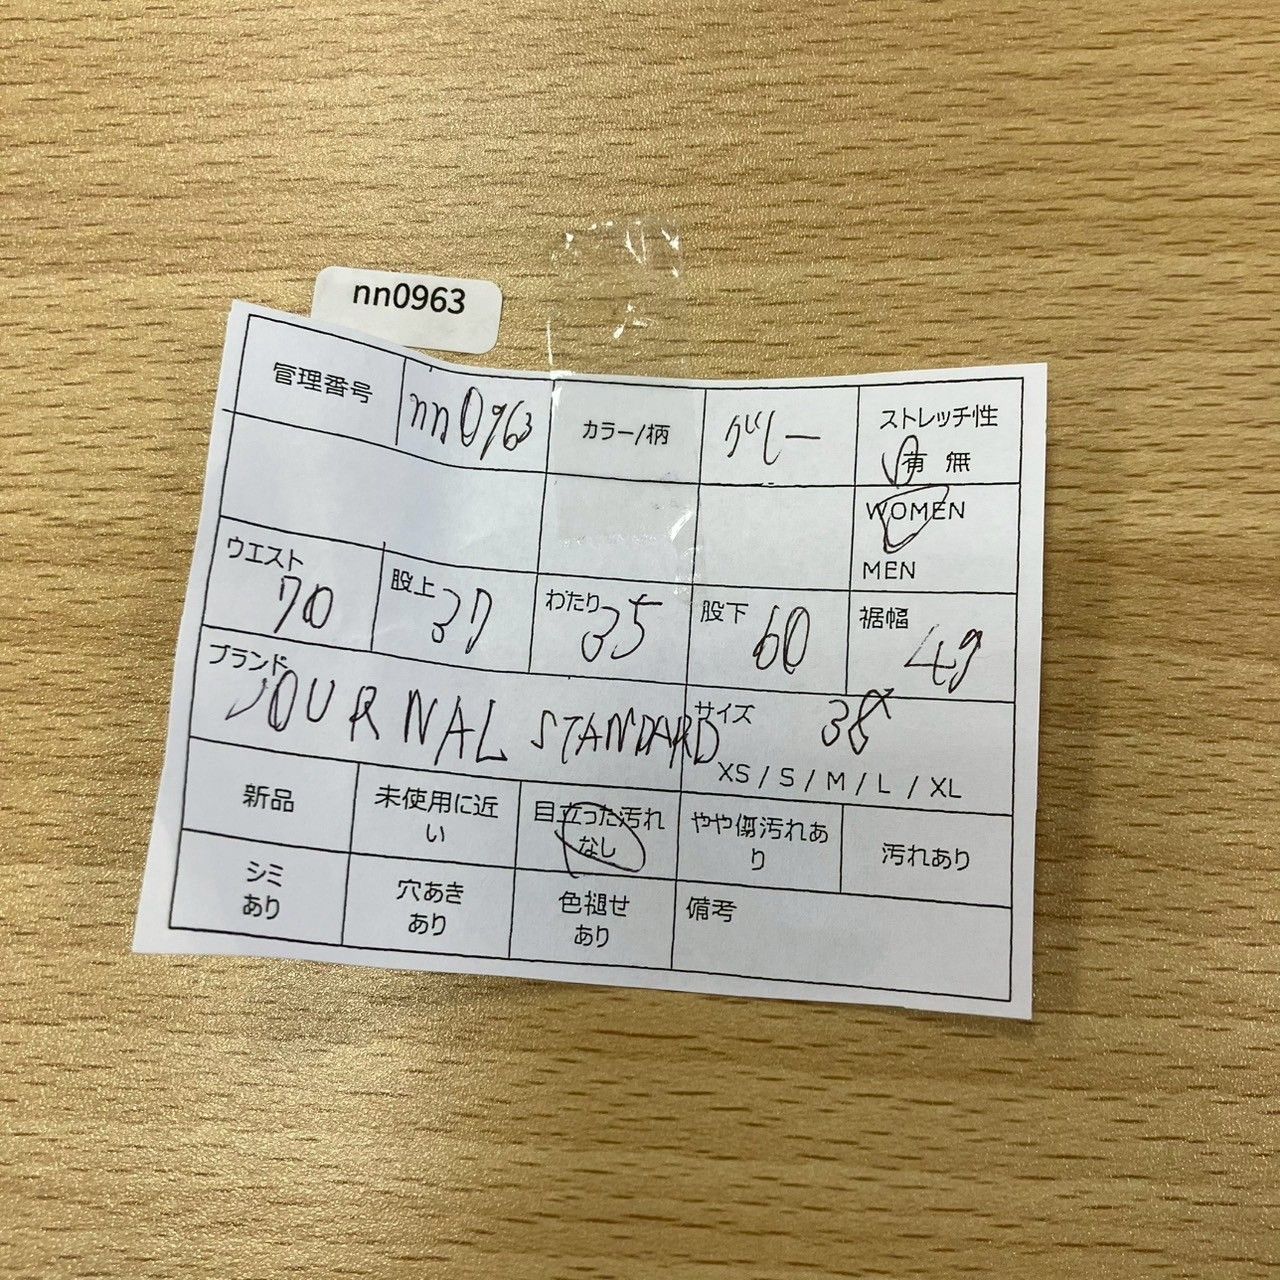 nn0963
管理番号 nn0963 カラー/柄 グレー ストレッチ性
有 無
WOMEN
MEN
ウエスト 70 股上 37 わたり 35 股下 60 裾幅 49
ブランド JOURNAL STANDARD サイズ 38
XS / S / M / L / XL
新品 未使用に近
い 目立った汚れ
なし やや傷汚れあ
り 汚れあり
シミ
あり 穴あき
あり 色褪せ
あり 備考